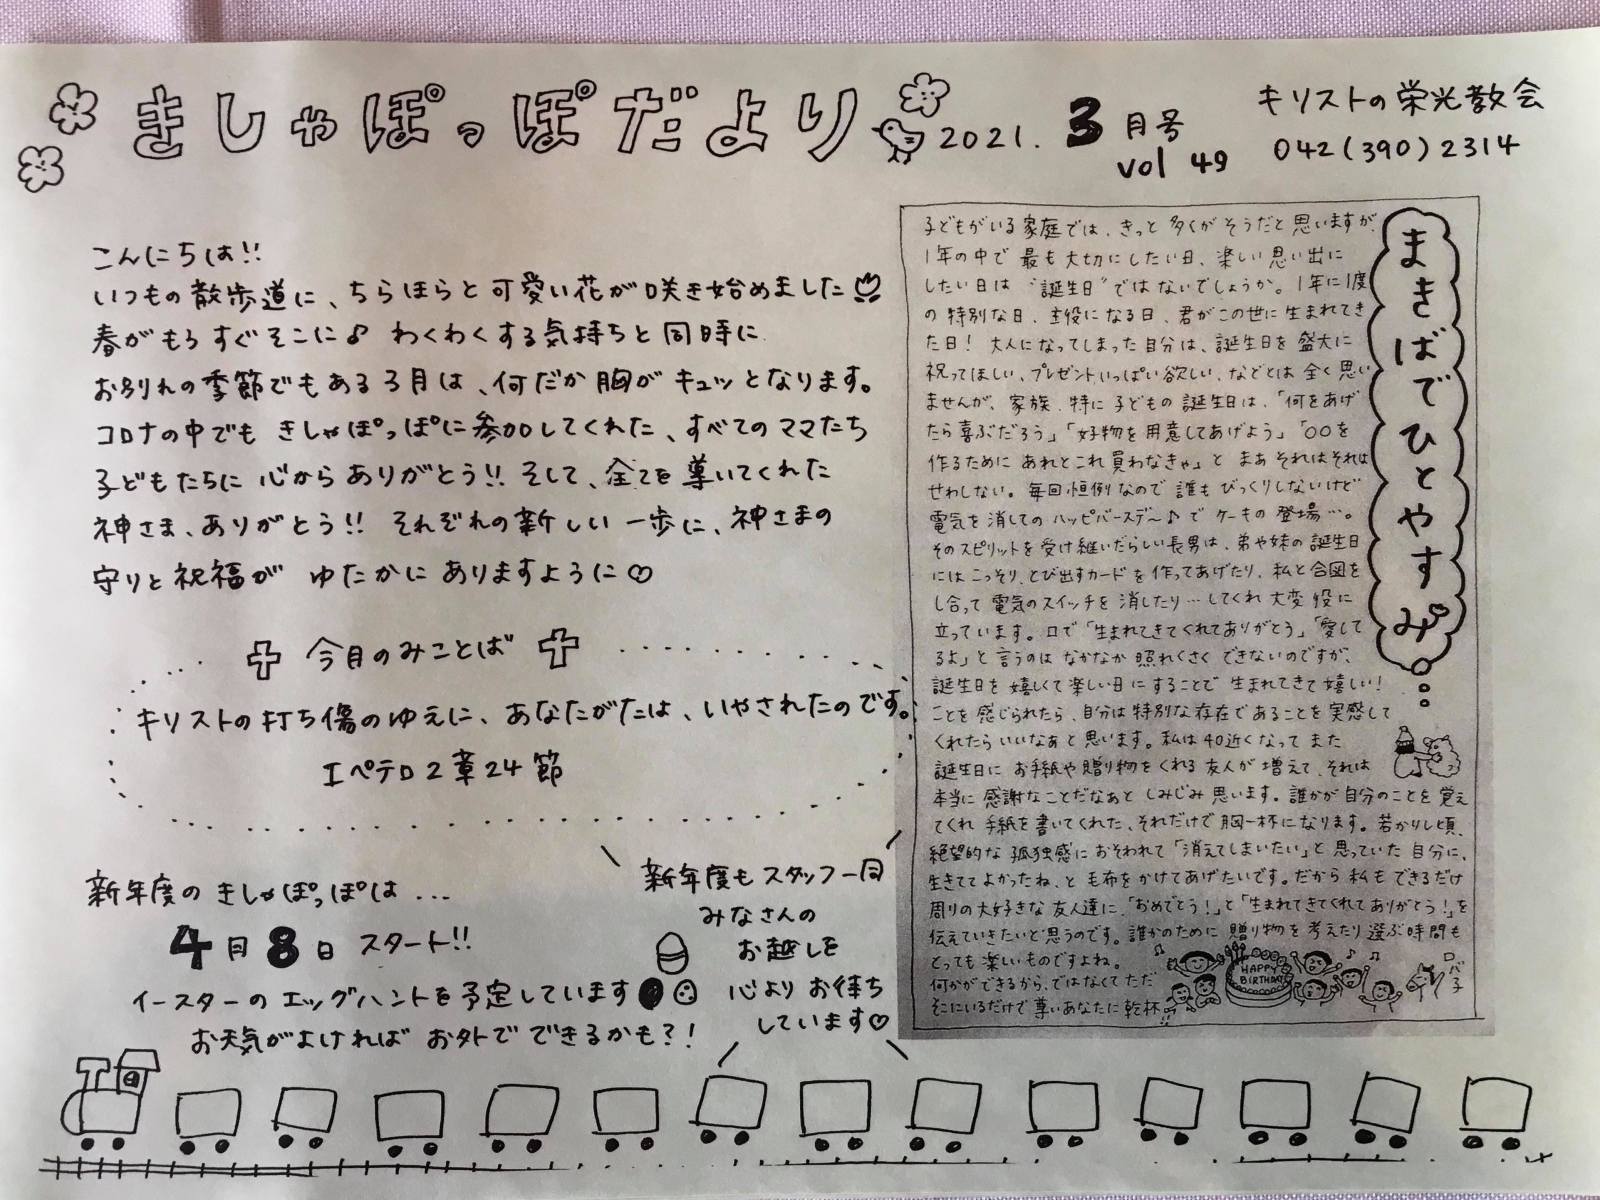 きしゃぽっぽだより
2021. 3月号
vol 49
キリストの栄光教会
042(390)2314
こんにちは!!
いつもの散歩道に、ちらほらと可愛い花が咲き始めました
春がもうすぐそこに♪ わくわくする気持ちと同時に
お別れの季節でもある3月は、何だか胸がキュッとなります。
コロナの中でも きしゃぽっぽに参加してくれた、すべてのママたち
子どもたちに 心からありがとう!! そして、全てを導いてくれた
神さま、ありがとう!! それぞれの新しい一歩に、神さまの
守りと祝福が ゆたかにありますように♡
今月のみことば
キリストの打ち傷のゆえに、あなたがたは、いやされたのです。
Iペテロ2章24節
新年度の きしゃぽっぽは...
4月8日 スタート!!
イースターのエッグハントを予定しています
お天気がよければ お外で できるかも?!
新年度もスタッフ一同
みなさんの
お越しを
心よりお待ち
しています♡
まきばでひとやすみ
子どもがいる家庭では、きっと多くがそうだと思いますが、
1年の中で 最も大切にしたい日、楽しい思い出に
したい日は "誕生日"ではないでしょうか。1年に1度
の特別な日、主役になる日、君がこの世に生まれてき
た日! 大人になってしまった自分は、誕生日を盛大に
祝ってほしい、プレゼントいっぱい欲しい、などとは全く思い
ませんが、家族、特に子どもの誕生日は、「何をあげ
たら喜ぶだろう」「好物を用意してあげよう」「○○を
作るために あれとこれ買わなきゃ」と まあ それはそれは
せわしない。毎回恒例なので 誰もびっくりしないけど
電気を消しての ハッピバースデ～♪で ケーキの登場…。
そのスピリットを受け継いだらしい長男は、弟や妹の誕生日
にはこっそり、とび出すカードを作ってあげたり、私と合図を
し合って 電気のスイッチを消したり…してくれ大変役に
立っています。口で「生まれてきてくれてありがとう」「愛して
るよ」と言うのはなかなか照れくさくできないのですが、
誕生日を嬉しくて楽しい日にすることで 生まれてきて嬉しい!
ことを感じられたら、自分は特別な存在であることを実感して
くれたらいいなぁと思います。私は40近くなって また
誕生日に お手紙や贈り物をくれる友人が増えて、それは
本当に感謝なことだなあと しみじみ思います。誰かが自分のことを覚え
てくれ 手紙を書いてくれた、それだけで胸一杯になります。若かりし頃、
絶望的な孤独感におそわれて「消えてしまいたい」と思っていた自分に、
生きててよかったね、と毛布をかけてあげたいです。だから私もできるだけ
周りの大好きな友人達に、「おめでとう!」と「生まれてきてくれてありがとう!」を
伝えていきたいと思うのです。誰かのために 贈り物を考えたり選ぶ時間も
とっても楽しいものですよね。
何かができるから、ではなくてただ
そこにいるだけで尊いあなたに乾杯!!
HAPPY
BIRTHDAY
ロバ子